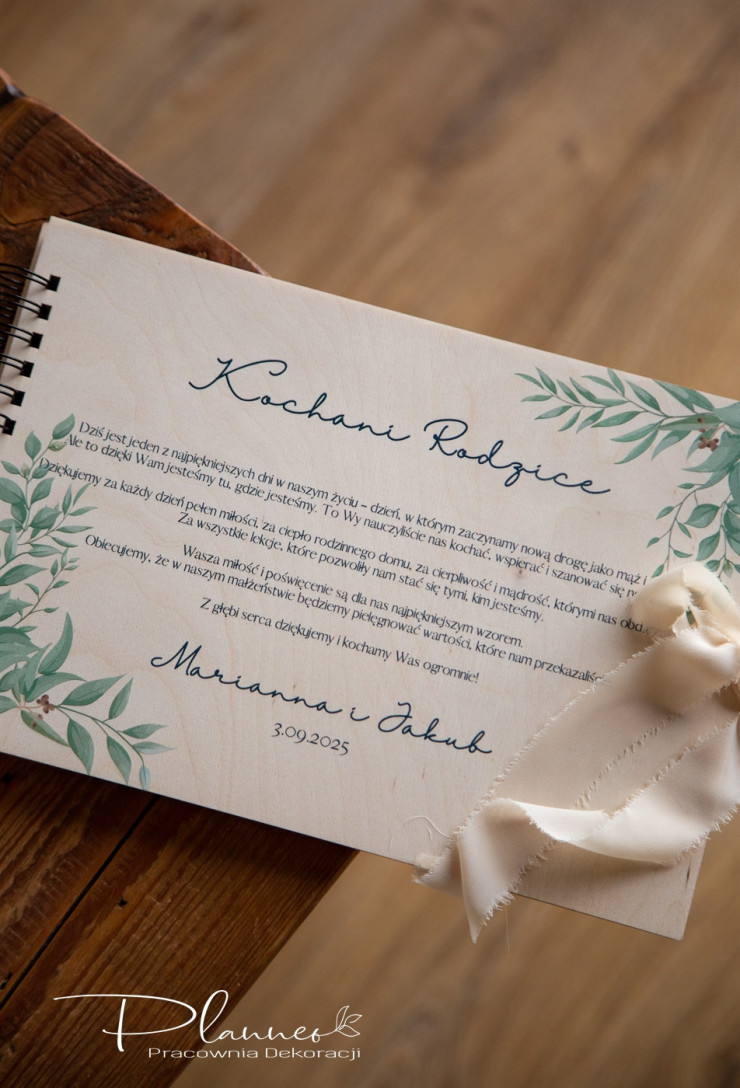 Kochani Rodzice
Dziś jest jeden z najpiękniejszych dni w naszym życiu – dzień, w którym zaczynamy nową drogę jako mąż i
Ale to dzięki Wam jesteśmy tu, gdzie jesteśmy. To Wy nauczyliście nas kochać, wspierać i szanować się
Dziękujemy za każdy dzień pełen miłości, za ciepło rodzinnego domu, za cierpliwość i mądrość, którymi nas
Za wszystkie lekcje, które pozwoliły nam stać się tymi, kim jesteśmy.
Wasza miłość i poświęcenie są dla nas najpiękniejszym wzorem.
Obiecujemy, że w naszym małżeństwie będziemy pielęgnować wartości, które nam
Z głębi serca dziękujemy i kochamy Was ogromnie!
Marianna i Jakub
3.09.2025
Planneo
Pracownia Dekoracji